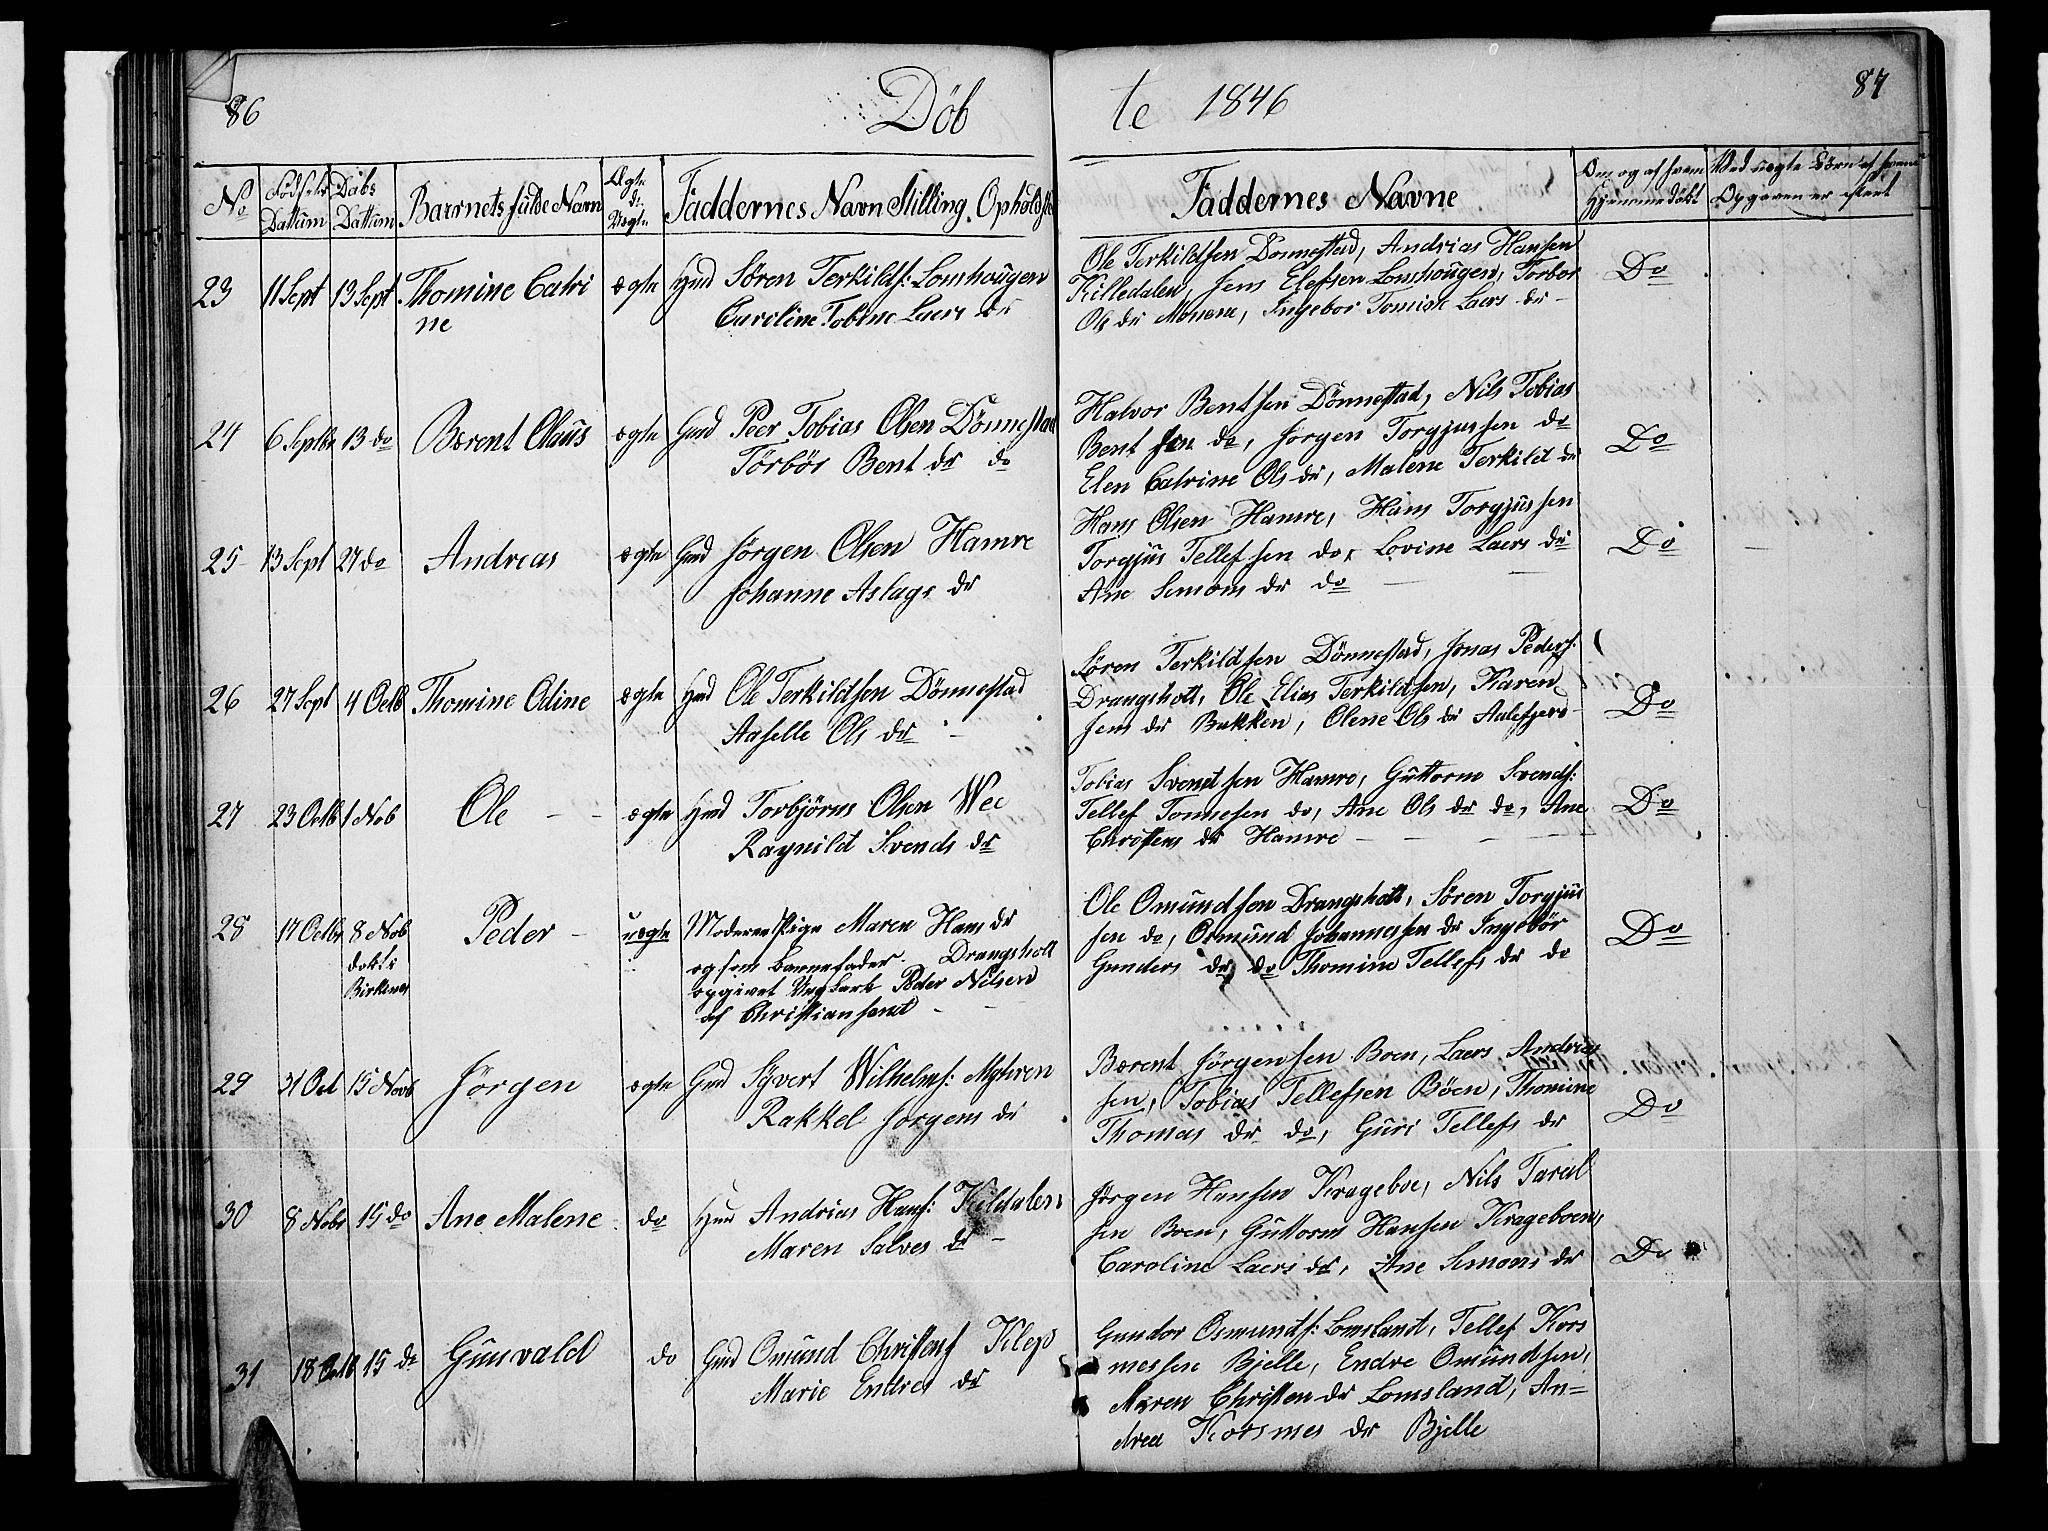 86
Döb
te 1846
87
No
Fødsels Dattum
Døbs Dattum
Barnets fulde Navn
Ægte el. Uægte
Faddernes Navn Stilling. Opholdste
Faddernes Navne
Om og af hvem Hjemmedøbt
Ved uægte Børn af hvem Opgaven er skeet
23 11 Sept 13 Sept Thomine Catri
ne
ægte Gmd Søren Terkilds: Lomhougen
Caroline Tobine Laers dr
Ole Terkildsen Dönnestad, Andrias Hansen
Killedalen, Jens Elefsen Lomhougen, Torbor
Ols dr Monene, Ingebor Tomine Laers dr -
Do
24 6 Septbr 13 do Bærent Olaus ægte Gmd Peer Tobias Olsen Dönnestad
Törbör Bent dr do
Halvor Bentsen Dönnestad, Nils Tobias
Bentsen do, Jørgen Torgjussen do
Elen Catrine Ols dr, Malene Terkild dr
Do
25 13 Sept 27 do Andreas ægte Gmd Jørgen Olsen Hamre
Johanne Aslags dr
Hans Olsen Hamre, Hans Torgjussen
Torgjus Tellefsen do, Lovine Laers dr
Ane Semons dr do
Do
26 27 Sept 4 Octb Thomine Odine ægte Hmd Ole Terkildsen Dönnestad
Aaselle Ols dr
Søren Terkildsen Dönnestad, Jonas Peders:
Drangsholt, Ole Elias Terkildsen, Karen
Jens dr Bakken, Olene Ols dr Aalefjero
Do
27 23 Octb 1 Nob Ole - - ægte Hmd Torbjörns Olsen Wee
Ragnild Svends dr
Tobias Svendsen Hamre, Guttorm Svends:
Tellef Tonnesen do, Ane Ols dr do, Ane
Christens dr Hamre
Do
28 17 Octbr 8 Nob
dobt i
Birkenes
Peder - uægte Moderen Pige Maren Hans dr
og som barnefader. Drangsholt
opgivet Ungkarl Peder Nilsen
af Christiansand
Ole Omundsen Drangsholt, Søren Torgjus
sen do, Osmund Johannessen dr Ingebör
Gunders dr do Thomine Tellefs dr do
Do
29 31 Oct 15 Novb Jörgen ægte Gmd Syvert Wilhelms: Myhren
Rakkel Jorgens dr
Bærent Jörgensen Boen, Laers Andrias
sen, Tobias Tellefsen Böen, Thomine
Thomas dr do, Guri Tellefs dr
Do
30 8 Nobr 15 do Ane Malene do Hmd Andrias Hans: Kildalen
Maren Salves dr -
Jørgen Hansen Krageboe, Nils Taral
sen Boen, Guttorm Hansen Krageboen,
Caroline Laers dr, Ane Semons dr
Do
31 18 Octb 15 do Gunvald do Gmd Omund Christens Klepo
Marie Endres dr
Gundor Osmunds: Lomsland, Tellef Kors
messen Bjelle, Endre Omundsen,
Maren Christen dr Lomsland, An=
drea Korsmes dr Bjelle